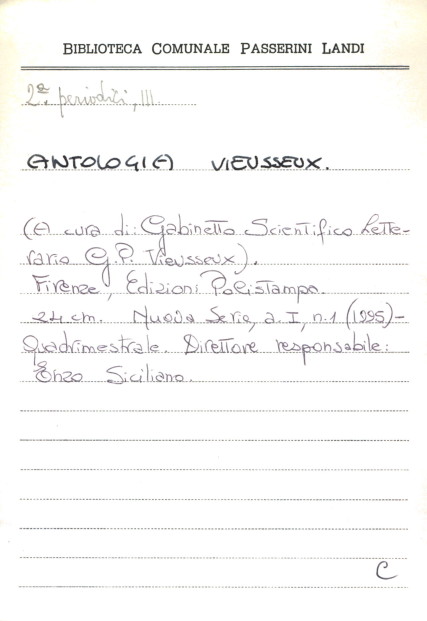 BIBLIOTECA COMUNALE PASSERINI LANDI
2ª. periodici, III
ANTOLOGIA VIEUSSEUX.
(A cura di: Gabinetto Scientifico Lette-
rario G.P. Vieusseux).
Firenze, Edizioni Polistampa.
24 cm. Nuova Serie, a. I, n. 1 (1995)-
Quadrimestrale. Direttore responsabile:
Enzo Siciliano.
C